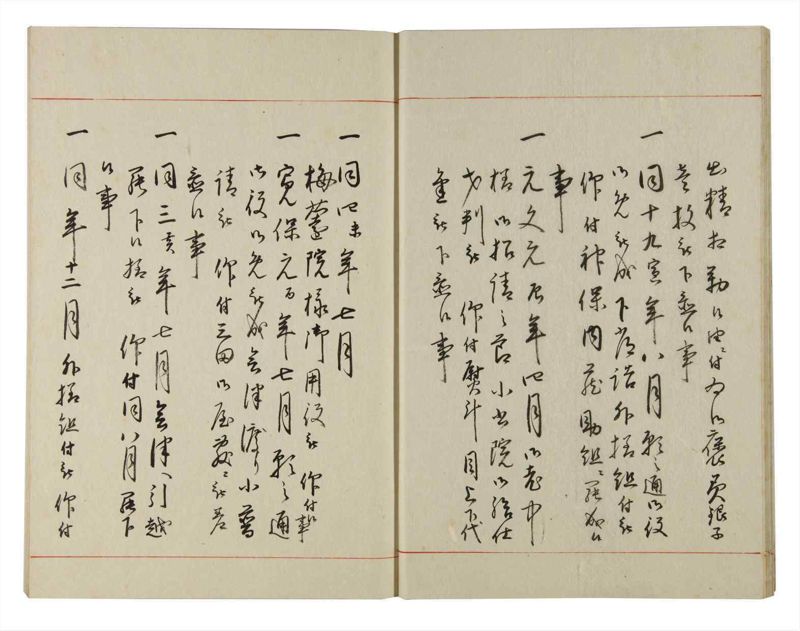 出精相勤候ニ付為御褒美銀子
壱枚被下置候事
一 同十九寅年八月願之通御役
御免被成下 詰外様組付被
仰付神保内蔵助組ニ罷成候
事
一 元文元辰年四月御老中
様御招請之節小書院御給仕
被 仰付熨斗目上下代
金被下置候事
一 同四未年七月
梅 院様御用役被 仰付候事
一 寛保元酉年七月願之通
御役御免被成会津渡り小普
請被 仰付三田御屋敷ニ被差
置候事
一 同三亥年七月会津へ引越
罷下候様被 仰付同八月罷下
候事
一 同年十二月外様組付被 仰付